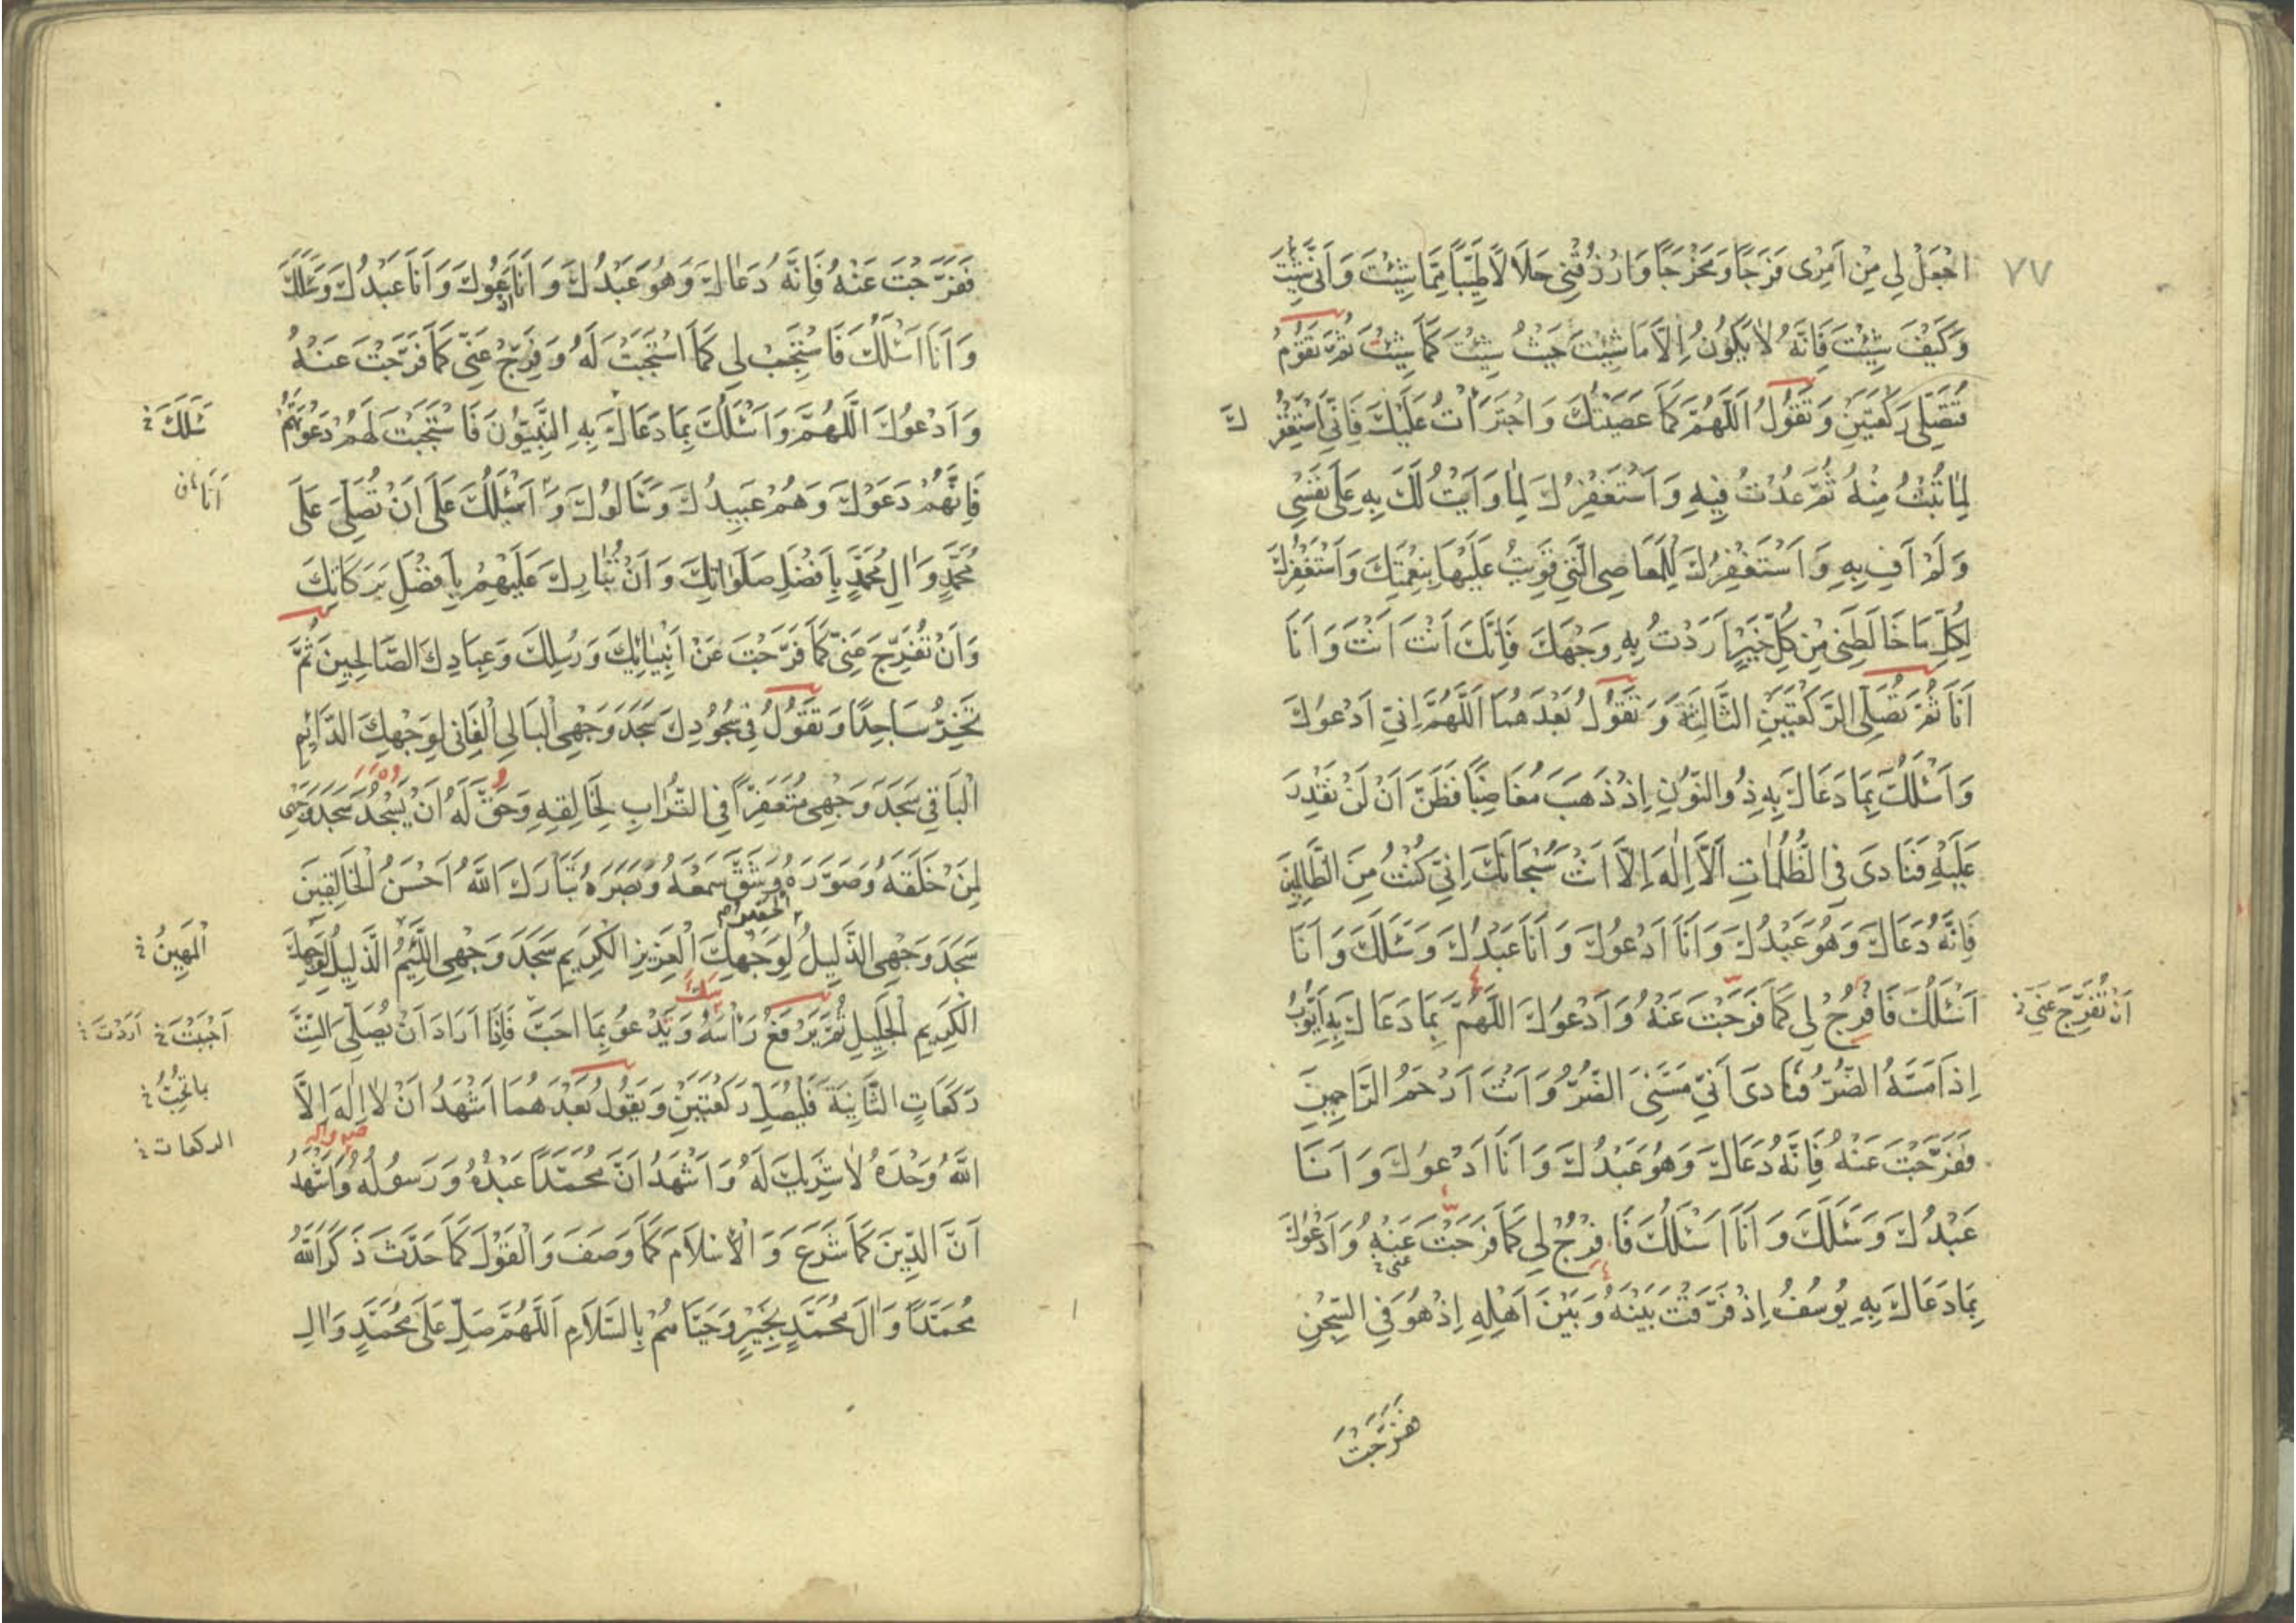 ٧٧
اجْعَلْ لِي مِنْ اَمْرِى فَرَجًا وَمَخْرَجًا وَارْزُقْنِى حَلَالًا طَيِّبًا مِمَّا شِئْتَ وَاَنّٰى شِئْتَ
وَكَيْفَ شِئْتَ فَاِنَّهُ لَا يَكُونُ اِلَّا مَا شِئْتَ حَيْثُ شِئْتَ كَمَا شِئْتَ ثُمَّ تَقُومُ
فَتُصَلِّى رَكْعَتَيْنِ وَتَقُولُ اَللّٰهُمَّ كَمَا عَصَيْتُكَ وَاجْتَرَأْتُ عَلَيْكَ فَاِنِّى اَسْتَغْفِرُ
كَ
لِمَا تُبْتُ مِنْهُ ثُمَّ عُدْتُ فِيهِ وَاَسْتَغْفِرُكَ لِمَا وَاَيْتُ لَكَ بِهِ عَلٰى نَفْسِى
وَلَمْ اَفِ بِهِ وَاَسْتَغْفِرُكَ لِلْمَعَاصِى الَّتِى قَوِيتُ عَلَيْهَا بِنِعْمَتِكَ وَاَسْتَغْفِرُكَ
لِكُلِّ مَا خَالَطَنِى مِنْ كُلِّ خَيْرٍ اَرَدْتُ بِهِ وَجْهَكَ فَاِنَّكَ اَنْتَ اَنْتَ وَاَنَا
اَنَا ثُمَّ تُصَلِّى الرَّكْعَتَيْنِ الثَّالِثَةَ وَتَقُولُ بَعْدَهُمَا اَللّٰهُمَّ اِنِّى اَدْعُوكَ
وَاَسْئَلُكَ بِمَا دَعَاكَ بِهِ ذُوالنُّونِ اِذْ ذَهَبَ مُغَاضِبًا فَظَنَّ اَنْ لَنْ نَقْدِرَ
عَلَيْهِ فَنَادٰى فِى الظُّلُمَاتِ اَلَّا اِلٰهَ اِلَّا اَنْتَ سُبْحَانَكَ اِنِّى كُنْتُ مِنَ الظَّالِمِينَ
فَاِنَّهُ دَعَاكَ وَهُوَ عَبْدُكَ وَاَنَا اَدْعُوكَ وَاَنَا عَبْدُكَ وَسَئَلَكَ وَاَنَا
اَسْئَلُكَ فَافْرُجْ لِى كَمَا فَرَّجْتَ عَنْهُ وَاَدْعُوكَ اللّٰهُمَّ بِمَا دَعَاكَ بِهِ اَيُّوبُ
اَنْ تُفَرِّجَ عَنِّى
اِذْ اَمَسَّهُ الضُّرُّ فَنَادٰى اَنِّى مَسَّنِىَ الضُّرُّ وَاَنْتَ اَرْحَمُ الرَّاحِمِينَ
فَفَرَّجْتَ عَنْهُ فَاِنَّهُ دَعَاكَ وَهُوَ عَبْدُكَ وَاَنَا اَدْعُوكَ وَاَنَا
عَبْدُكَ وَسَئَلَكَ وَاَنَا اَسْئَلُكَ فَافْرُجْ لِى كَمَا فَرَّجْتَ عَنْهُ وَاَدْعُوكَ
بِمَا دَعَاكَ بِهِ يُوسُفُ اِذْ فَرَّقْتَ بَيْنَهُ وَبَيْنَ اَهْلِهِ اِذْ هُوَ فِى السِّجْنِ
فَفَرَّجْتَ
فَفَرَّجْتَ عَنْهُ فَاِنَّهُ دَعَاكَ وَهُوَ عَبْدُكَ وَاَنَا اَدْعُوكَ وَاَنَا عَبْدُكَ وَسَاَلَكَ
وَاَنَا اَسْئَلُكَ فَاسْتَجِبْ لِى كَمَا اسْتَجَبْتَ لَهُ وَفَرِّجْ عَنِّى كَمَا فَرَّجْتَ عَنْهُ
وَاَدْعُوكَ اَللّٰهُمَّ وَاَسْئَلُكَ بِمَا دَعَاكَ بِهِ النَّبِيُّونَ فَاسْتَجَبْتَ لَهُمْ دَعْوَتَهُمْ
سَئَلَكَ
فَاِنَّهُمْ دَعَوْكَ وَهُمْ عَبِيدُكَ وَسَاَلُوكَ وَاَسْئَلُكَ عَلٰى اَنْ تُصَلِّىَ عَلٰى
اَنَا
مُحَمَّدٍ وَاٰلِ مُحَمَّدٍ بِاَفْضَلِ صَلَوَاتِكَ وَاَنْ تُبَارِكَ عَلَيْهِمْ بِاَفْضَلِ بَرَكَاتِكَ
وَاَنْ تُفَرِّجَ عَنِّى كَمَا فَرَّجْتَ عَنْ اَنْبِيَائِكَ وَرُسُلِكَ وَعِبَادِكَ الصَّالِحِينَ ثُمَّ
تَخِرُّ سَاجِدًا وَتَقُولُ فِى سُجُودِكَ سَجَدَ وَجْهِىَ الْبَالِى الْفَانِى لِوَجْهِكَ الدَّائِمِ
الْبَاقِى سَجَدَ وَجْهِى مُتَعَفِّرًا فِى التُّرَابِ لِخَالِقِهِ وَحَقَّ لَهُ اَنْ يَسْجُدَ سَجَدَ وَجْهِى
لِمَنْ خَلَقَهُ وَصَوَّرَهُ وَشَقَّ سَمْعَهُ وَبَصَرَهُ تَبَارَكَ اللّٰهُ اَحْسَنُ الْخَالِقِينَ
سَجَدَ وَجْهِىَ الذَّلِيلُ لِوَجْهِكَ الْعَزِيزِ الْكَرِيمِ سَجَدَ وَجْهِىَ اللَّئِيمُ الذَّلِيلُ لِوَجْهِكَ
الْحَقِيرُ
الْمَهِينُ
الْكَرِيمِ الْجَلِيلِ ثُمَّ يَرْفَعُ رَأْسَهُ وَيَدْعُو بِمَا اَحَبَّ فَاِذَا اَرَادَ اَنْ يُصَلِّىَ الثَّ
اَحْبَبْتَ اَرَدْتَ
رَكَعَاتٍ الثَّانِيَةَ فَلْيُصَلِّ رَكْعَتَيْنِ وَيَقُولُ بَعْدَهُمَا اَشْهَدُ اَنْ لَا اِلٰهَ اِلَّا
الركعات
اللّٰهُ وَحْدَهُ لَا شَرِيكَ لَهُ وَاَشْهَدُ اَنَّ مُحَمَّدًا عَبْدُهُ وَرَسُولُهُ وَاَشْهَدُ
اَنَّ الدِّينَ كَمَا شَرَعَ وَالْاِسْلَامَ كَمَا وَصَفَ وَالْقَوْلَ كَمَا حَدَّثَ ذَكَرَ اللّٰهُ
مُحَمَّدًا وَاٰلَ مُحَمَّدٍ بِخَيْرٍ وَحَيَّاهُمْ بِالسَّلَامِ اَللّٰهُمَّ صَلِّ عَلٰى مُحَمَّدٍ وَاٰلِ